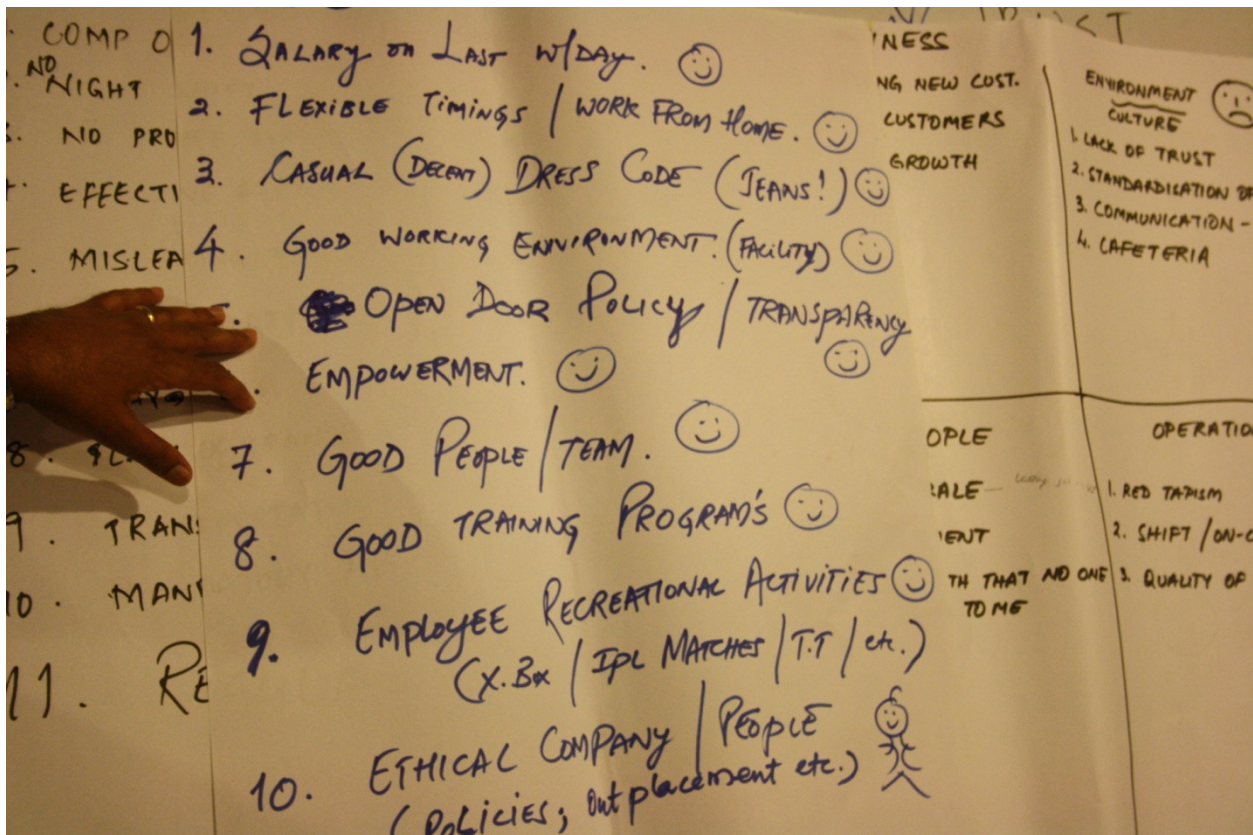 COMP O
NO
NIGHT
NO PRO
EFFECTI
5. MISLEA
8.
9. TRANS
10. MAN
11. RE
1. SALARY on LAST W/DAY.
2. FLEXIBLE TIMINGS / WORK FROM HOME.
3. CASUAL (DECENT) DRESS CODE (JEANS!)
4. GOOD WORKING ENVIRONMENT. (FACILITY)
5. OPEN DOOR POLICY / TRANSPARENCY
EMPOWERMENT.
7. GOOD PEOPLE / TEAM.
8. GOOD TRAINING PROGRAM'S
9. EMPLOYEE RECREATIONAL ACTIVITIES
(X.Box / IPL MATCHES / T.T / etc.)
10. ETHICAL COMPANY / PEOPLE
(POLICIES; Outplacement etc.)
NESS
NG NEW COST.
CUSTOMERS
GROWTH
ENVIRONMENT
CULTURE
1. LACK OF TRUST
2. STANDARDISATION OF
3. COMMUNICATION -
4. CAFETERIA
OPLE
RALE
ENT
TH THAT NO ONE
TO ME
OPERATIO
1. RED TAPISM
2. SHIFT / ON-C
3. QUALITY OF